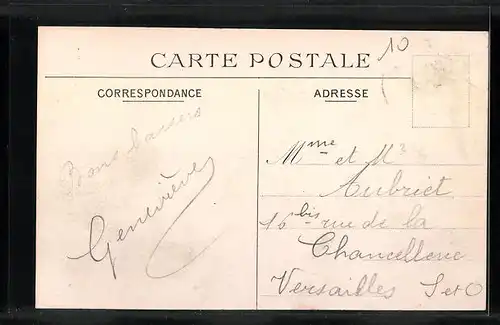 10
CARTE POSTALE
CORRESPONDANCE
ADRESSE
Bons baisers
Geneviève
Mme et Mr
Aubriet
16 bis rue de la
Chancellerie
Versailles S et O